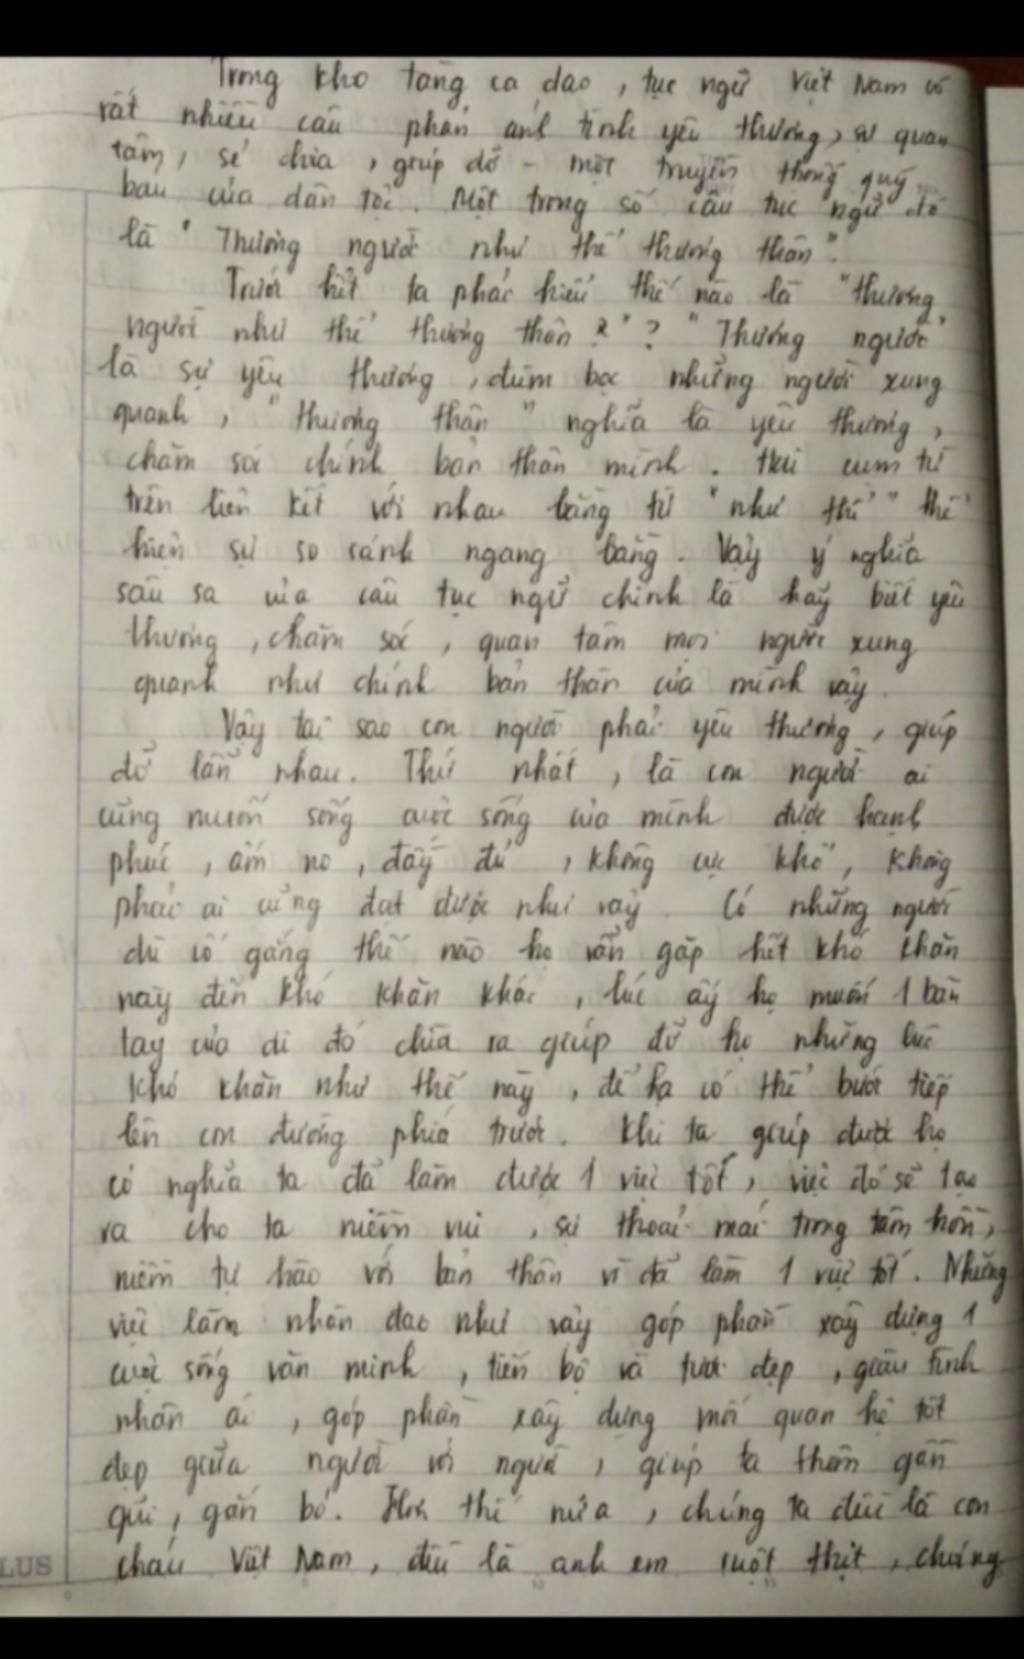 Trong kho tàng ca dao, tục ngữ Việt Nam có
rất nhiều câu phản ánh tình yêu thương, sự quan
tâm, sẻ chia, giúp đỡ - một truyền thống quý
báu của dân tộc. Một trong số câu tục ngữ đó
là "Thương người như thể thương thân".
Trước hết ta phải hiểu thế nào là "thương
người như thể thương thân?"? "Thương người"
là sự yêu thương, đùm bọc những người xung
quanh, "thương thân" nghĩa là yêu thương,
chăm sóc chính bản thân mình. Hai cụm từ
trên liên kết với nhau bằng từ "như thể" thể
hiện sự so sánh ngang bằng. Vậy ý nghĩa
sâu sa của câu tục ngữ chính là hãy biết yêu
thương, chăm sóc, quan tâm mọi người xung
quanh như chính bản thân của mình vậy.
Vậy tại sao con người phải yêu thương, giúp
đỡ lẫn nhau. Thứ nhất, là con người ai
cũng muốn sống cuộc sống của mình được hạnh
phúc, ấm no, đầy đủ, không cực khổ, không
phải ai cũng đạt được như vậy. Có những người
dù cố gắng thế nào họ vẫn gặp hết khó khăn
này đến khó khăn khác, lúc ấy họ muốn 1 bàn
tay của ai đó chìa ra giúp đỡ họ những lúc
khó khăn như thế này, để họ có thể bước tiếp
lên con đường phía trước. Khi ta giúp được họ
có nghĩa ta đã làm được 1 việc tốt, việc đó sẽ tạo
ra cho ta niềm vui, sự thoải mái trong tâm hồn,
niềm tự hào với bản thân vì đã làm 1 việc tốt. Những
việc làm nhân đạo như vậy góp phần xây dựng 1
cuộc sống văn minh, tiến bộ và tươi đẹp, giàu tình
nhân ái, góp phần xây dựng mối quan hệ tốt
đẹp giữa người với người, giúp ta thân gần
gũi, gắn bó. Hơn thế nữa, chúng ta đều là con
cháu Việt Nam, đều là anh em ruột thịt, chúng
LUS